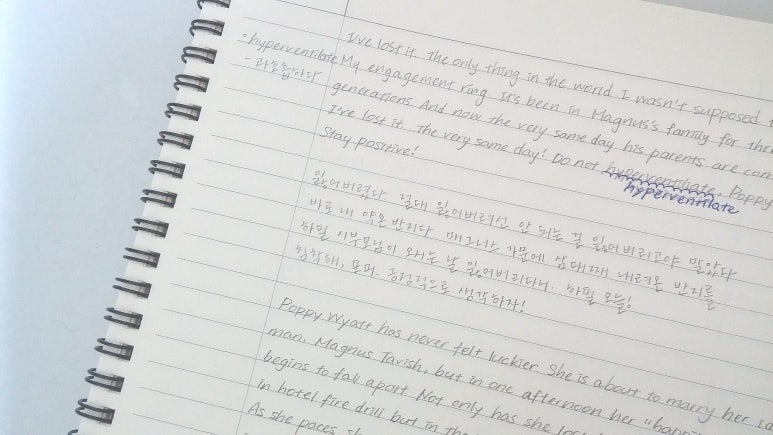 I've lost it. The only thing in the world I wasn't supposed
· hyperventilate
My engagement ring. It's been in Magnus's family for
- 과호흡하다
generations. And now the very same day his parents are
I've lost it. The very same day! Do not hyperventilate, Poppy
hyperventilate
Stay positive!
잃어버렸다. 절대 잃어버려선 안 되는 걸 잃어버리고야 말았다
바로 내 약혼 반지다. 매그너스 가문에 삼대째 내려온 반지를
하필 시부모님이 오시는 날 잃어버리다니. 하필 오늘!
침착해, 포피. 긍정적으로 생각하자!
Poppy Wyatt has never felt luckier. She is about to marry her
man, Magnus Tavish, but in one afternoon her "happily
begins to fall apart. Not only has she lost
in hotel fire drill but in the
As she paces